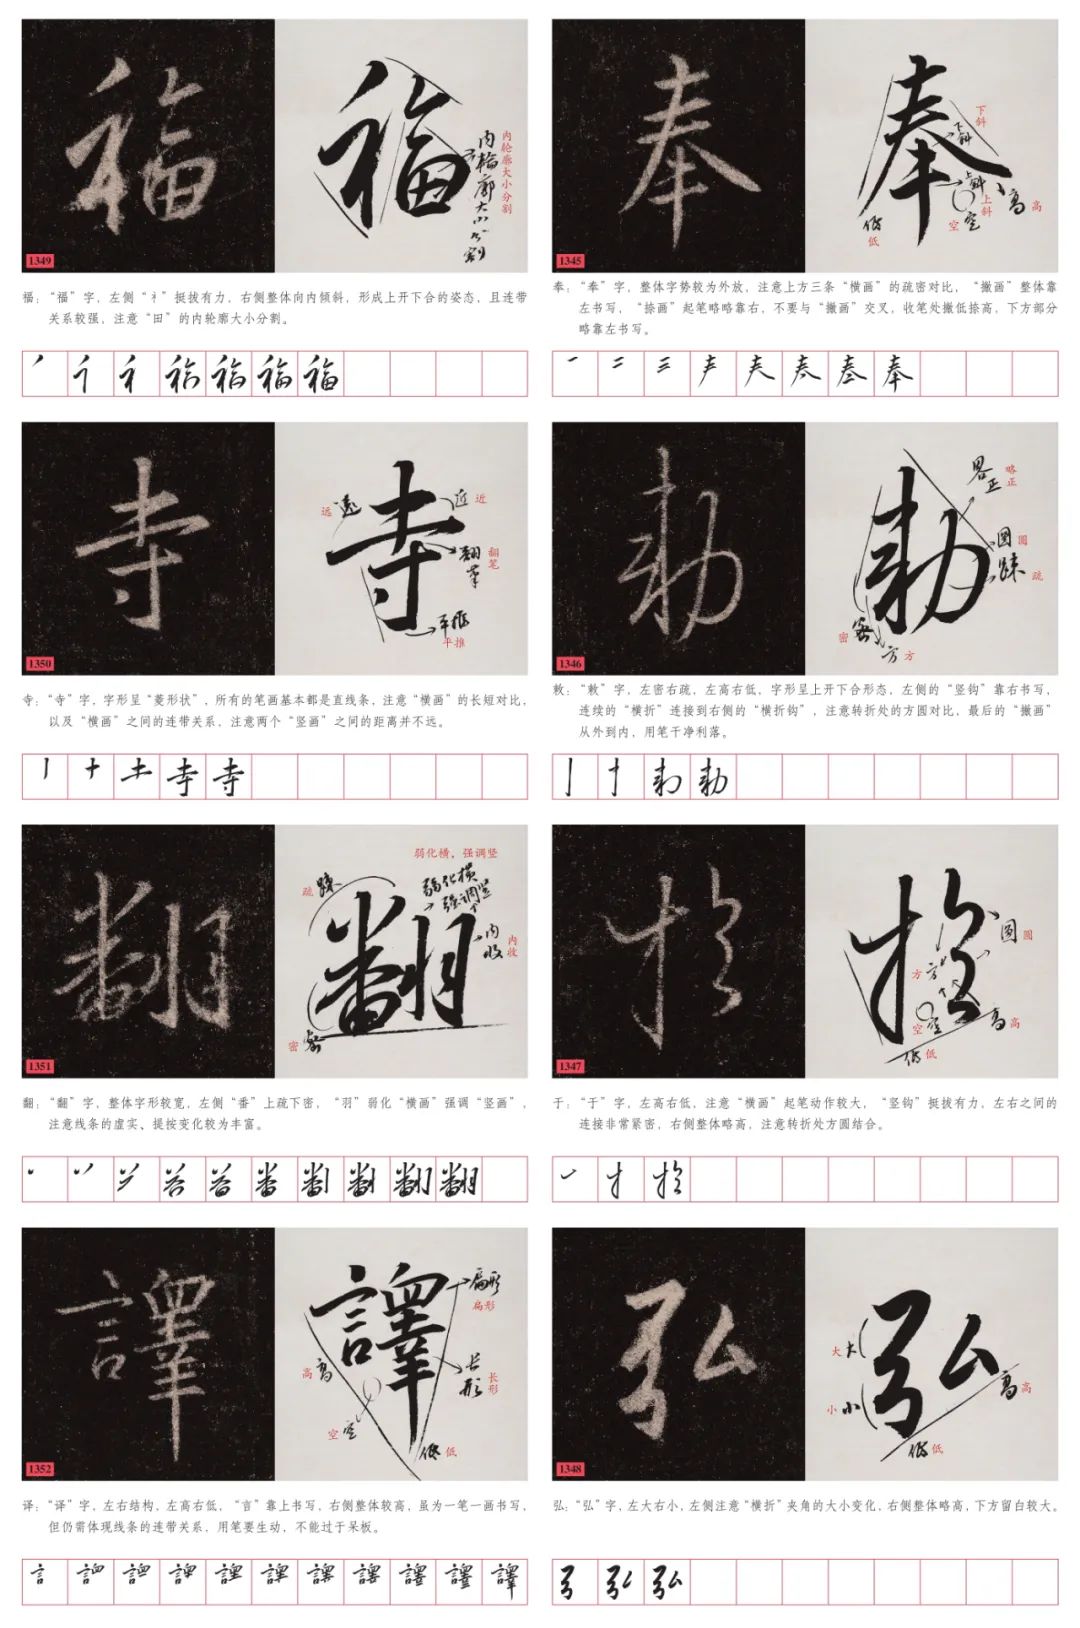 福
福
内轮廓大小分割
内轮廓大小分割
1349
福：“福”字，左侧“礻”挺拔有力，右侧整体向内倾斜，形成上开下合的姿态，且连带
关系较强，注意“田”的内轮廓大小分割。
奉
奉
下斜
下斜
上斜
上斜
高
高
空
空
低
低
1345
奉：“奉”字，整体字势较为外放，注意上方三条“横画”的疏密对比，“撇画”整体靠
左书写，“捺画”起笔略略靠右，不要与“撇画”交叉，收笔处撇低捺高，下方部分
略靠左书写。
寺
寺
远
遠
近
近
翻笔
翻笔
平推
平推
1350
寺：“寺”字，字形呈“菱形状”，所有的笔画基本都是直线条，注意“横画”的长短对比，
以及“横画”之间的连带关系，注意两个“竖画”之间的距离并不远。
勅
勅
略正
略正
圆
圆
疏
疏
密
密
方
方
1346
敕：“敕”字，左密右疏，左高右低，字形呈上开下合形态，左侧的“竖钩”靠右书写，
连续的“横折”连接到右侧的“横折钩”，注意转折处的方圆对比，最后的“撇画”
从外到内，用笔干净利落。
翻
翻
弱化横，强调竖
弱化横
强调竖
疏
疏
内收
内收
密
密
1351
翻：“翻”字，整体字形较宽，左侧“番”上疏下密，“羽”弱化“横画”强调“竖画”，
注意线条的虚实、提按变化较为丰富。
於
於
圆
圆
方
方
空
空
高
高
低
低
1347
于：“于”字，左高右低，注意“横画”起笔动作较大，“竖钩”挺拔有力，左右之间的
连接非常紧密，右侧整体略高，注意转折处方圆结合。
譯
譯
扁形
扁形
高
高
长形
长形
空
空
低
低
1352
译：“译”字，左右结构，左高右低，“言”靠上书写，右侧整体较高，虽为一笔一画书写，
但仍需体现线条的连带关系，用笔要生动，不能过于呆板。
弘
弘
大
大
小
小
高
高
低
低
1348
弘：“弘”字，左大右小，左侧注意“横折”夹角的大小变化，右侧整体略高，下方留白较大。